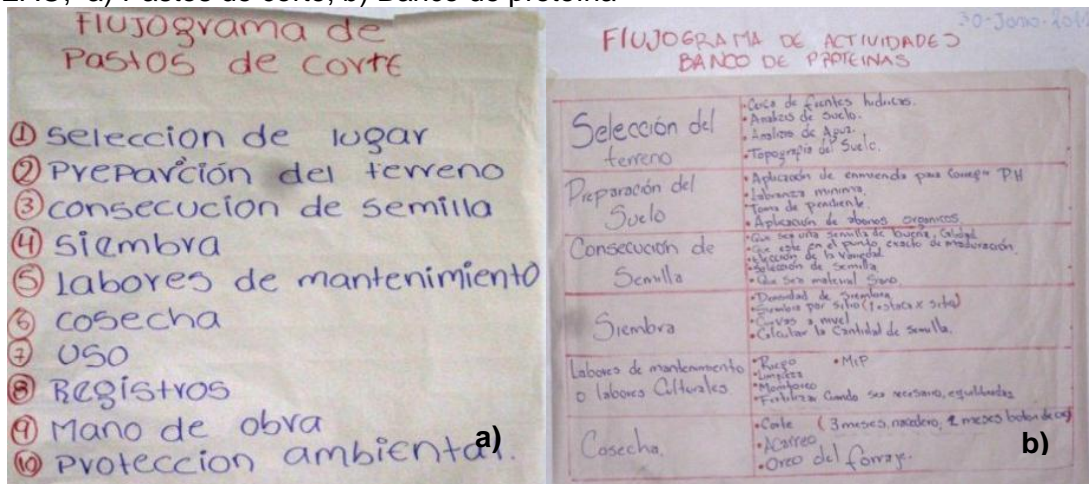 a) Pastos de corte, b) Banco de proteína
Flujograma de
Pastos de corte
① seleccion de lugar
② Preparción del terreno
③ consecucion de semilla
④ siembra
⑤ Labores de mantenimiento
⑥ cosecha
⑦ USO
⑧ Registros
⑨ Mano de obra
⑩ Proteccion ambiental.
a)
30-Junio-
FlUJOGRAMA DE ACTIVIDADES
BANCO DE PROTEINAS
Selección del
terreno
• Cerca de fuentes hidricas.
• Analisis de Suelo.
• Analisis de Agua.
• Topografia del Suelo.
Preparación del
Suelo
• Aplicación de enmienda para Corregir PH
• Labranza minima.
• Toma de pendiente.
• Aplicación de abonos organicos.
Consecución de
Semilla
• Que sea una semilla de buena, Calidad
• Que este en el punto exacto de maduración
• Elección de la Variedad
• Selección de Semilla
• Que Sea material Sano.
Siembra
• Densidad de Siembra.
• Siembra por Sitio (1 estaca x sitio)
• Curvas a nivel
• Calcular la Cantidad de Semilla.
Labores de mantenimiento
o labores Culturales.
• Riego • MIP
• Limpieza
• Monitoreo
• Fertilizar Cuando sea necesario, equilibradas
Cosecha.
• Corte (3 meses, nacedero, 2 meses boton de oro)
• Acarreo
• Oreo del forraje.
b)